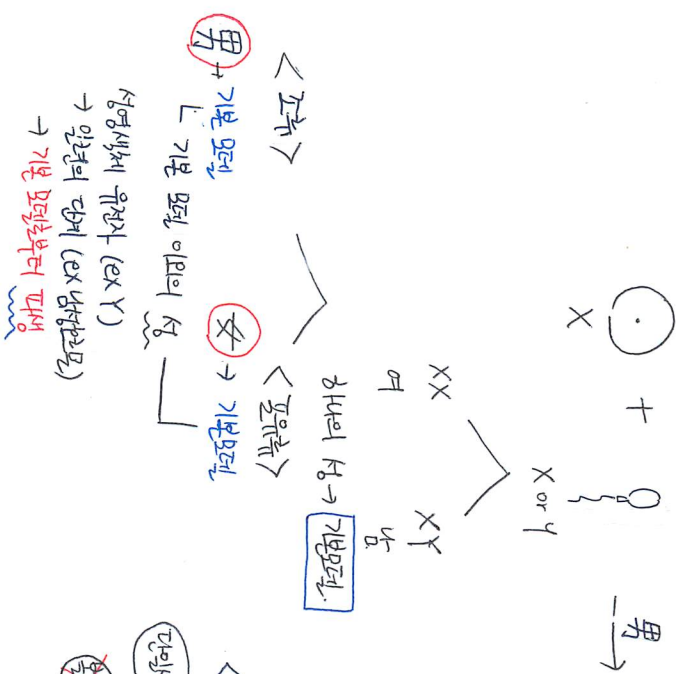 + 男 →
X X or Y
XX XY
여 남
하나의 성 → 기본모델.
<조류> <포유류>
男 → 기본 모델 女 → 기본모델
ㄴ 기본 모델 이외의 성
성염색체 유전자 (ex Y)
→ 일련의 단계 (ex 남성호르몬)
→ 기본 모델로부터 파생